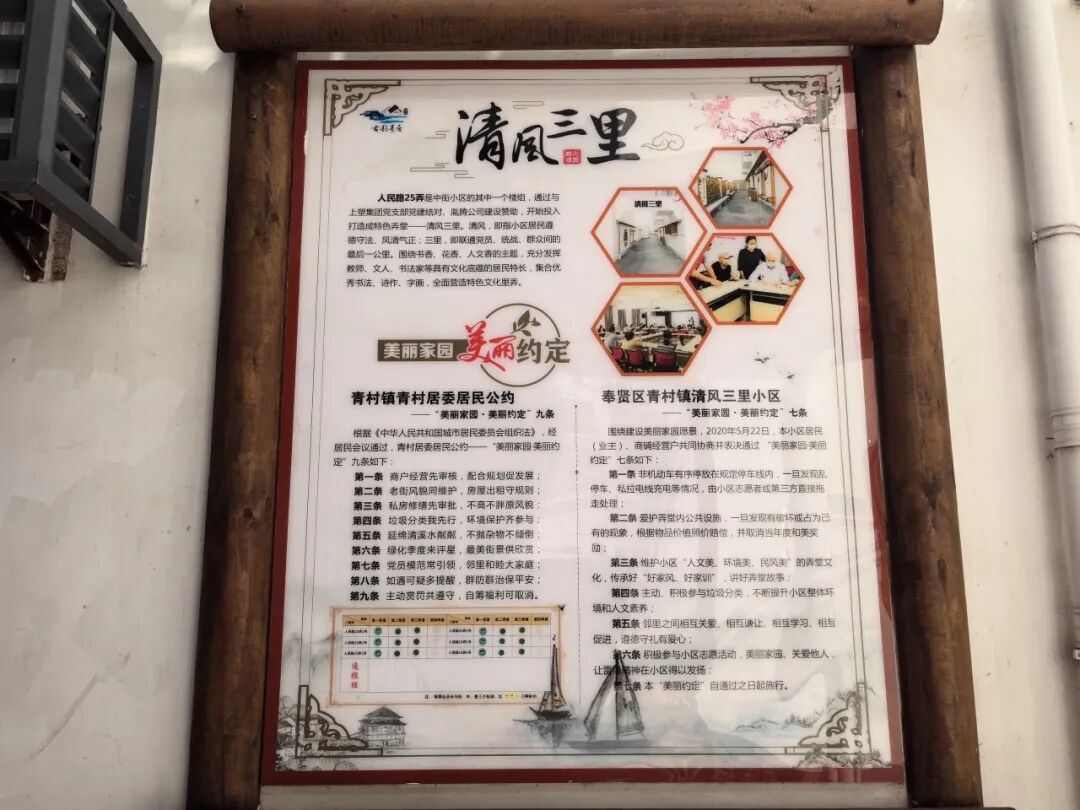 清风三里
人民路25弄是中街小区的其中一个楼组，通过与
上塑集团党支部党建结对、胤腾公司建设赞助，开始投入
打造成特色弄堂——清风三里。清风，即指小区居民遵
德守法、风清气正；三里，即联通党员、统战、群众间的
最后一公里。围绕书香、花香、人文香的主题，充分发挥
教师、文人、书法家等具有文化底蕴的居民特长，集合优
秀书法、诗作、字画，全面营造特色文化里弄。
清风三里
美丽家园 美丽约定
青村镇青村居委居民公约
——“美丽家园·美丽约定”九条
根据《中华人民共和国城市居民委员会组织法》，经
居民会议通过，青村居委居民公约——“美丽家园·美丽约
定”九条如下：
第一条 商户经营先审核，配合规划促发展；
第二条 老街风貌同维护，房屋出租守规则；
第三条 私房修缮先审批，不高不胖原风貌；
第四条 垃圾分类我先行，环境保护齐参与；
第五条 延绵清溪水粼粼，不抛杂物不倾倒；
第六条 绿化季度来评星，最美街景供欣赏；
第七条 党员模范常引领，邻里和睦大家庭；
第八条 如遇可疑多提醒，群防群治保平安；
第九条 主动赏罚共遵守，自筹福利可取消。
通报栏
奉贤区青村镇清风三里小区
——“美丽家园·美丽约定”七条
围绕建设美丽家园愿景，2020年5月22日，本小区居民
（业主）、商铺经营户共同协商并表决通过 “美丽家园·美丽
约定”七条如下：
第一条 非机动车有序停放在规定停车线内，一旦发现乱
停车、私拉电线充电等情况，由小区志愿者或第三方直接拖
走处理；
第二条 爱护弄堂内公共设施，一旦发现有破坏或占为己
有的现象，根据物品价值照价赔偿，并取消当年度和美奖
励；
第三条 维护小区“人文美、环境美、民风美”的弄堂文
化，传承好“好家风、好家训”，讲好弄堂故事；
第四条 主动、积极参与垃圾分类，不断提升小区整体环
境和人文素养；
第五条 邻里之间相互关爱、相互谦让、相互学习、相互
促进，遵德守礼有爱心；
第六条 积极参与小区志愿活动，美丽家园、关爱他人，
让雷锋精神在小区得以发扬；
第七条 本“美丽约定”自通过之日起施行。